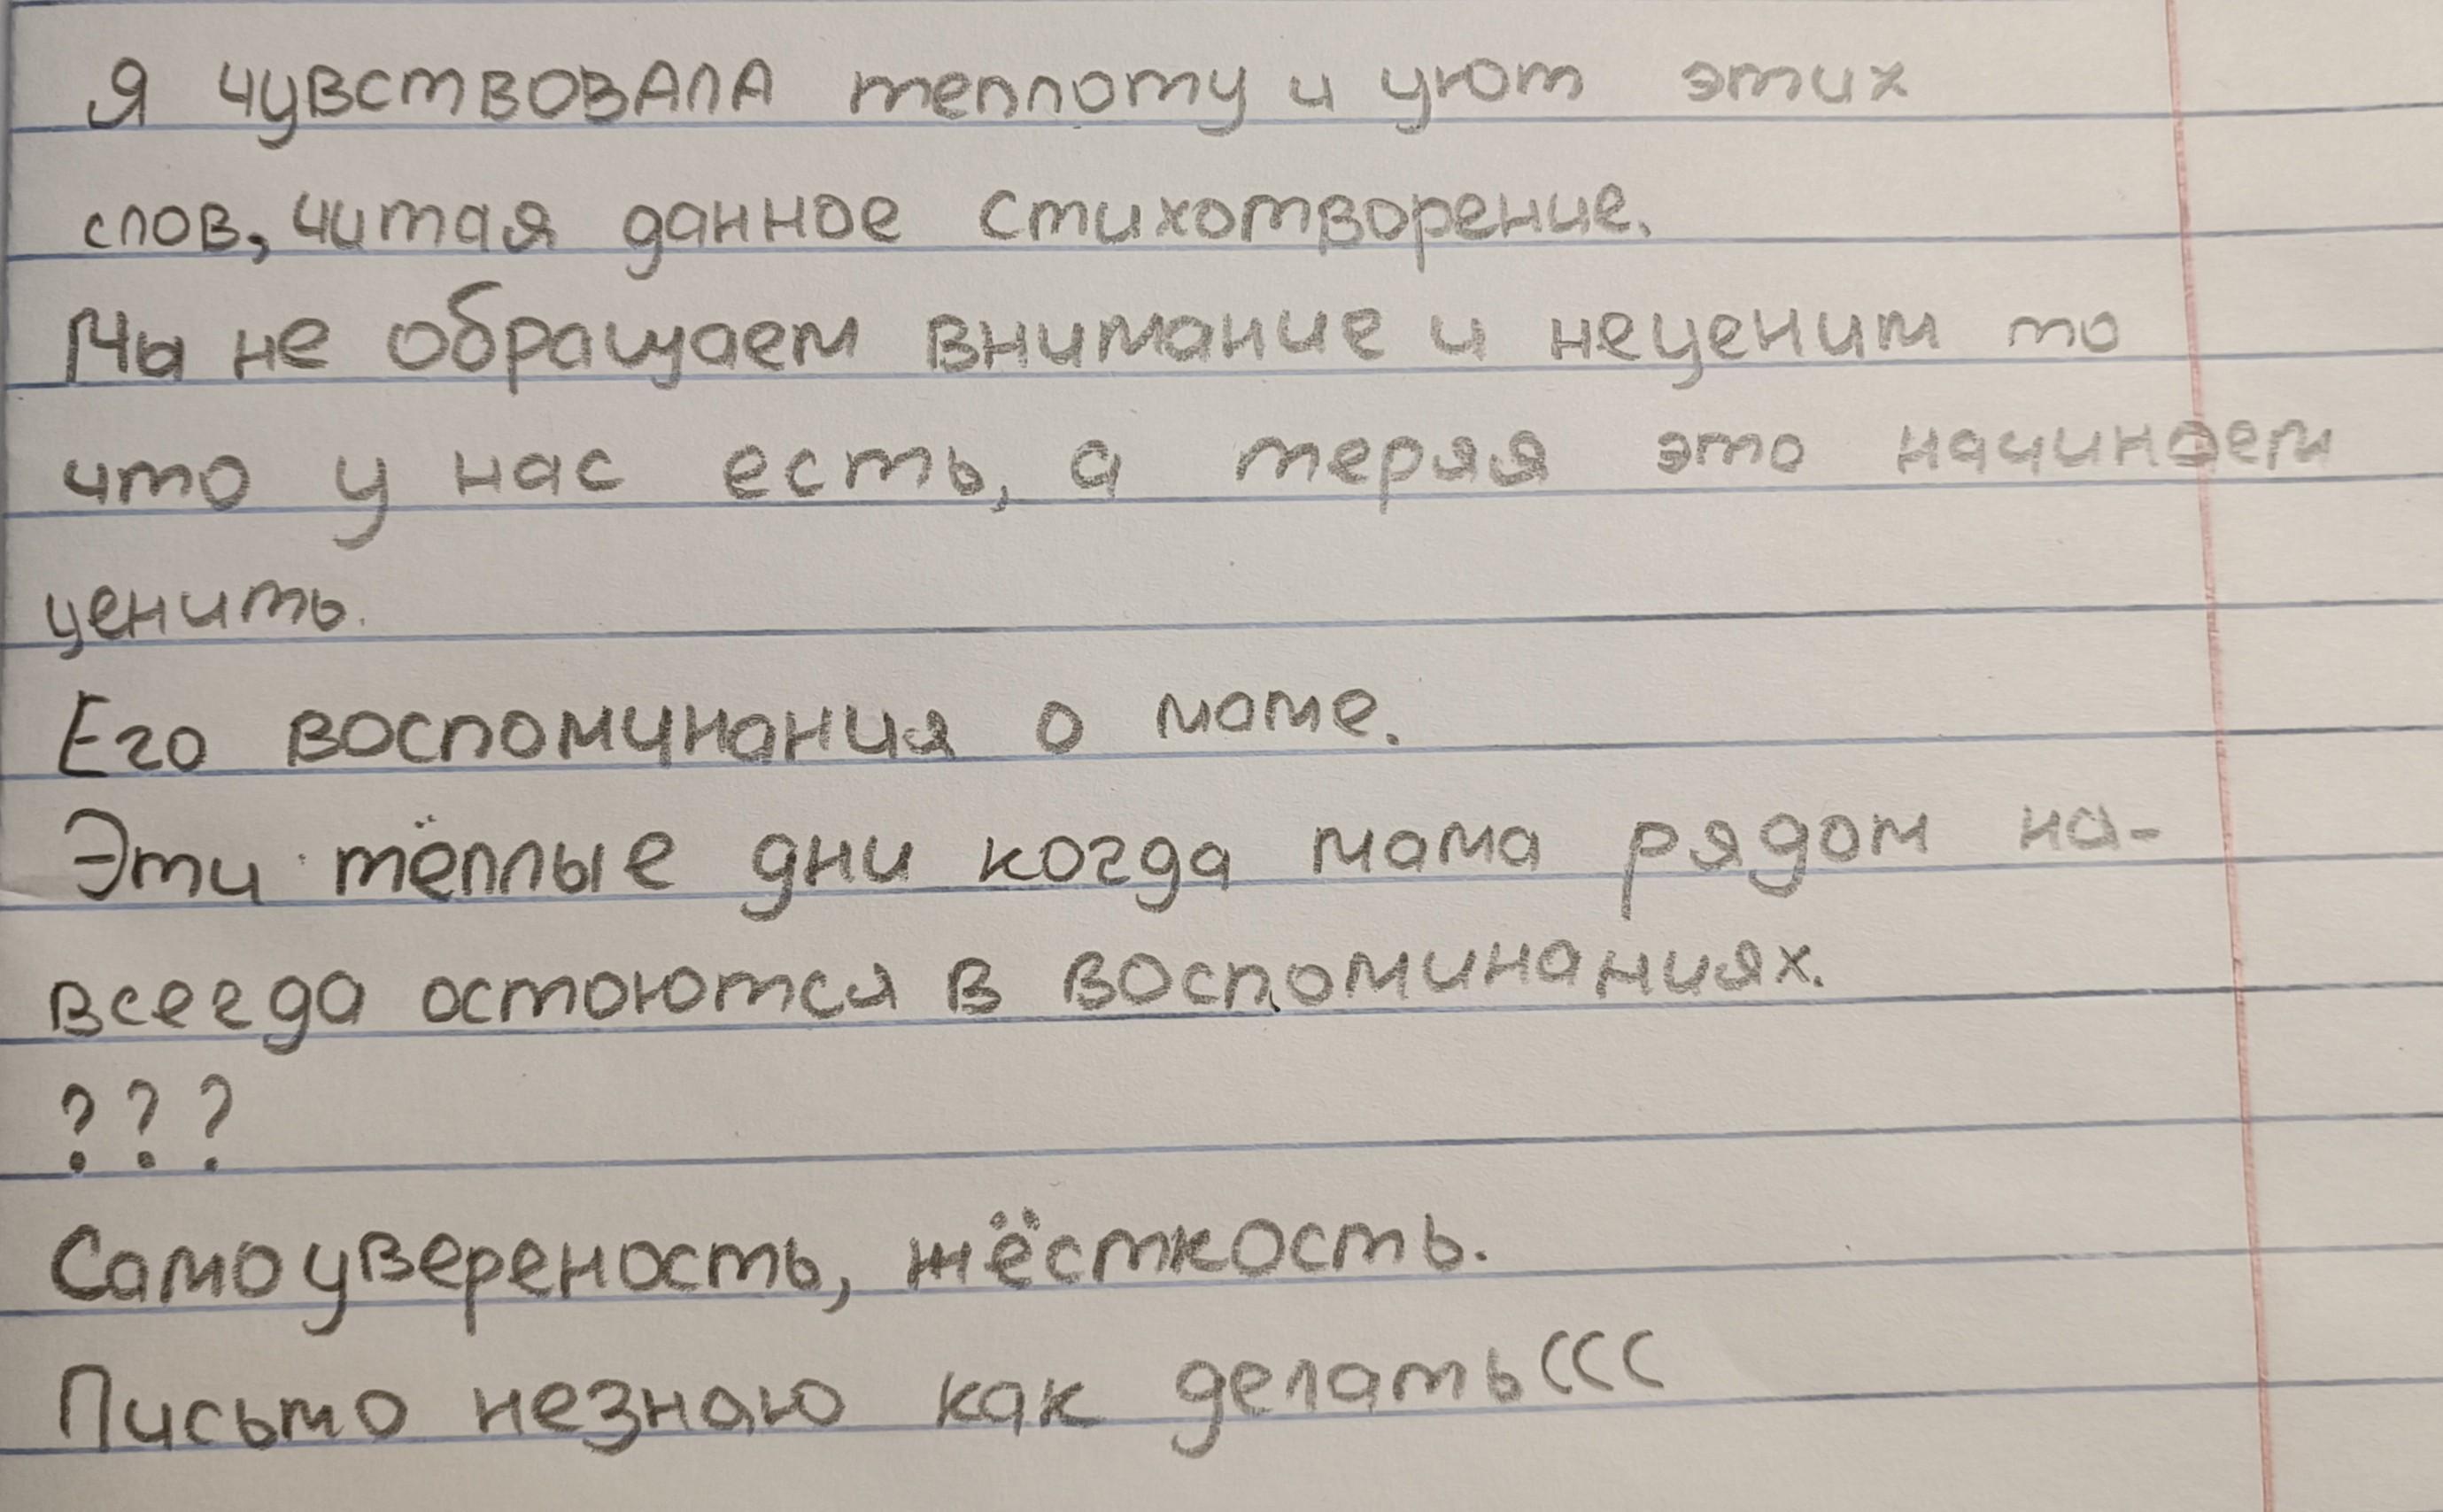 Я чувствовала теплоту и уют этих
слов, читая данное стихотворение.
Мы не обращаем внимание и неценим то
что у нас есть, а теряя это начинаем
ценить.
Его воспоминания о маме.
Эти тёплые дни когда мама рядом на-
всегда остоются в воспоминаниях.
???
Самоувереность, жёсткость.
Письмо незнаю как делать(((